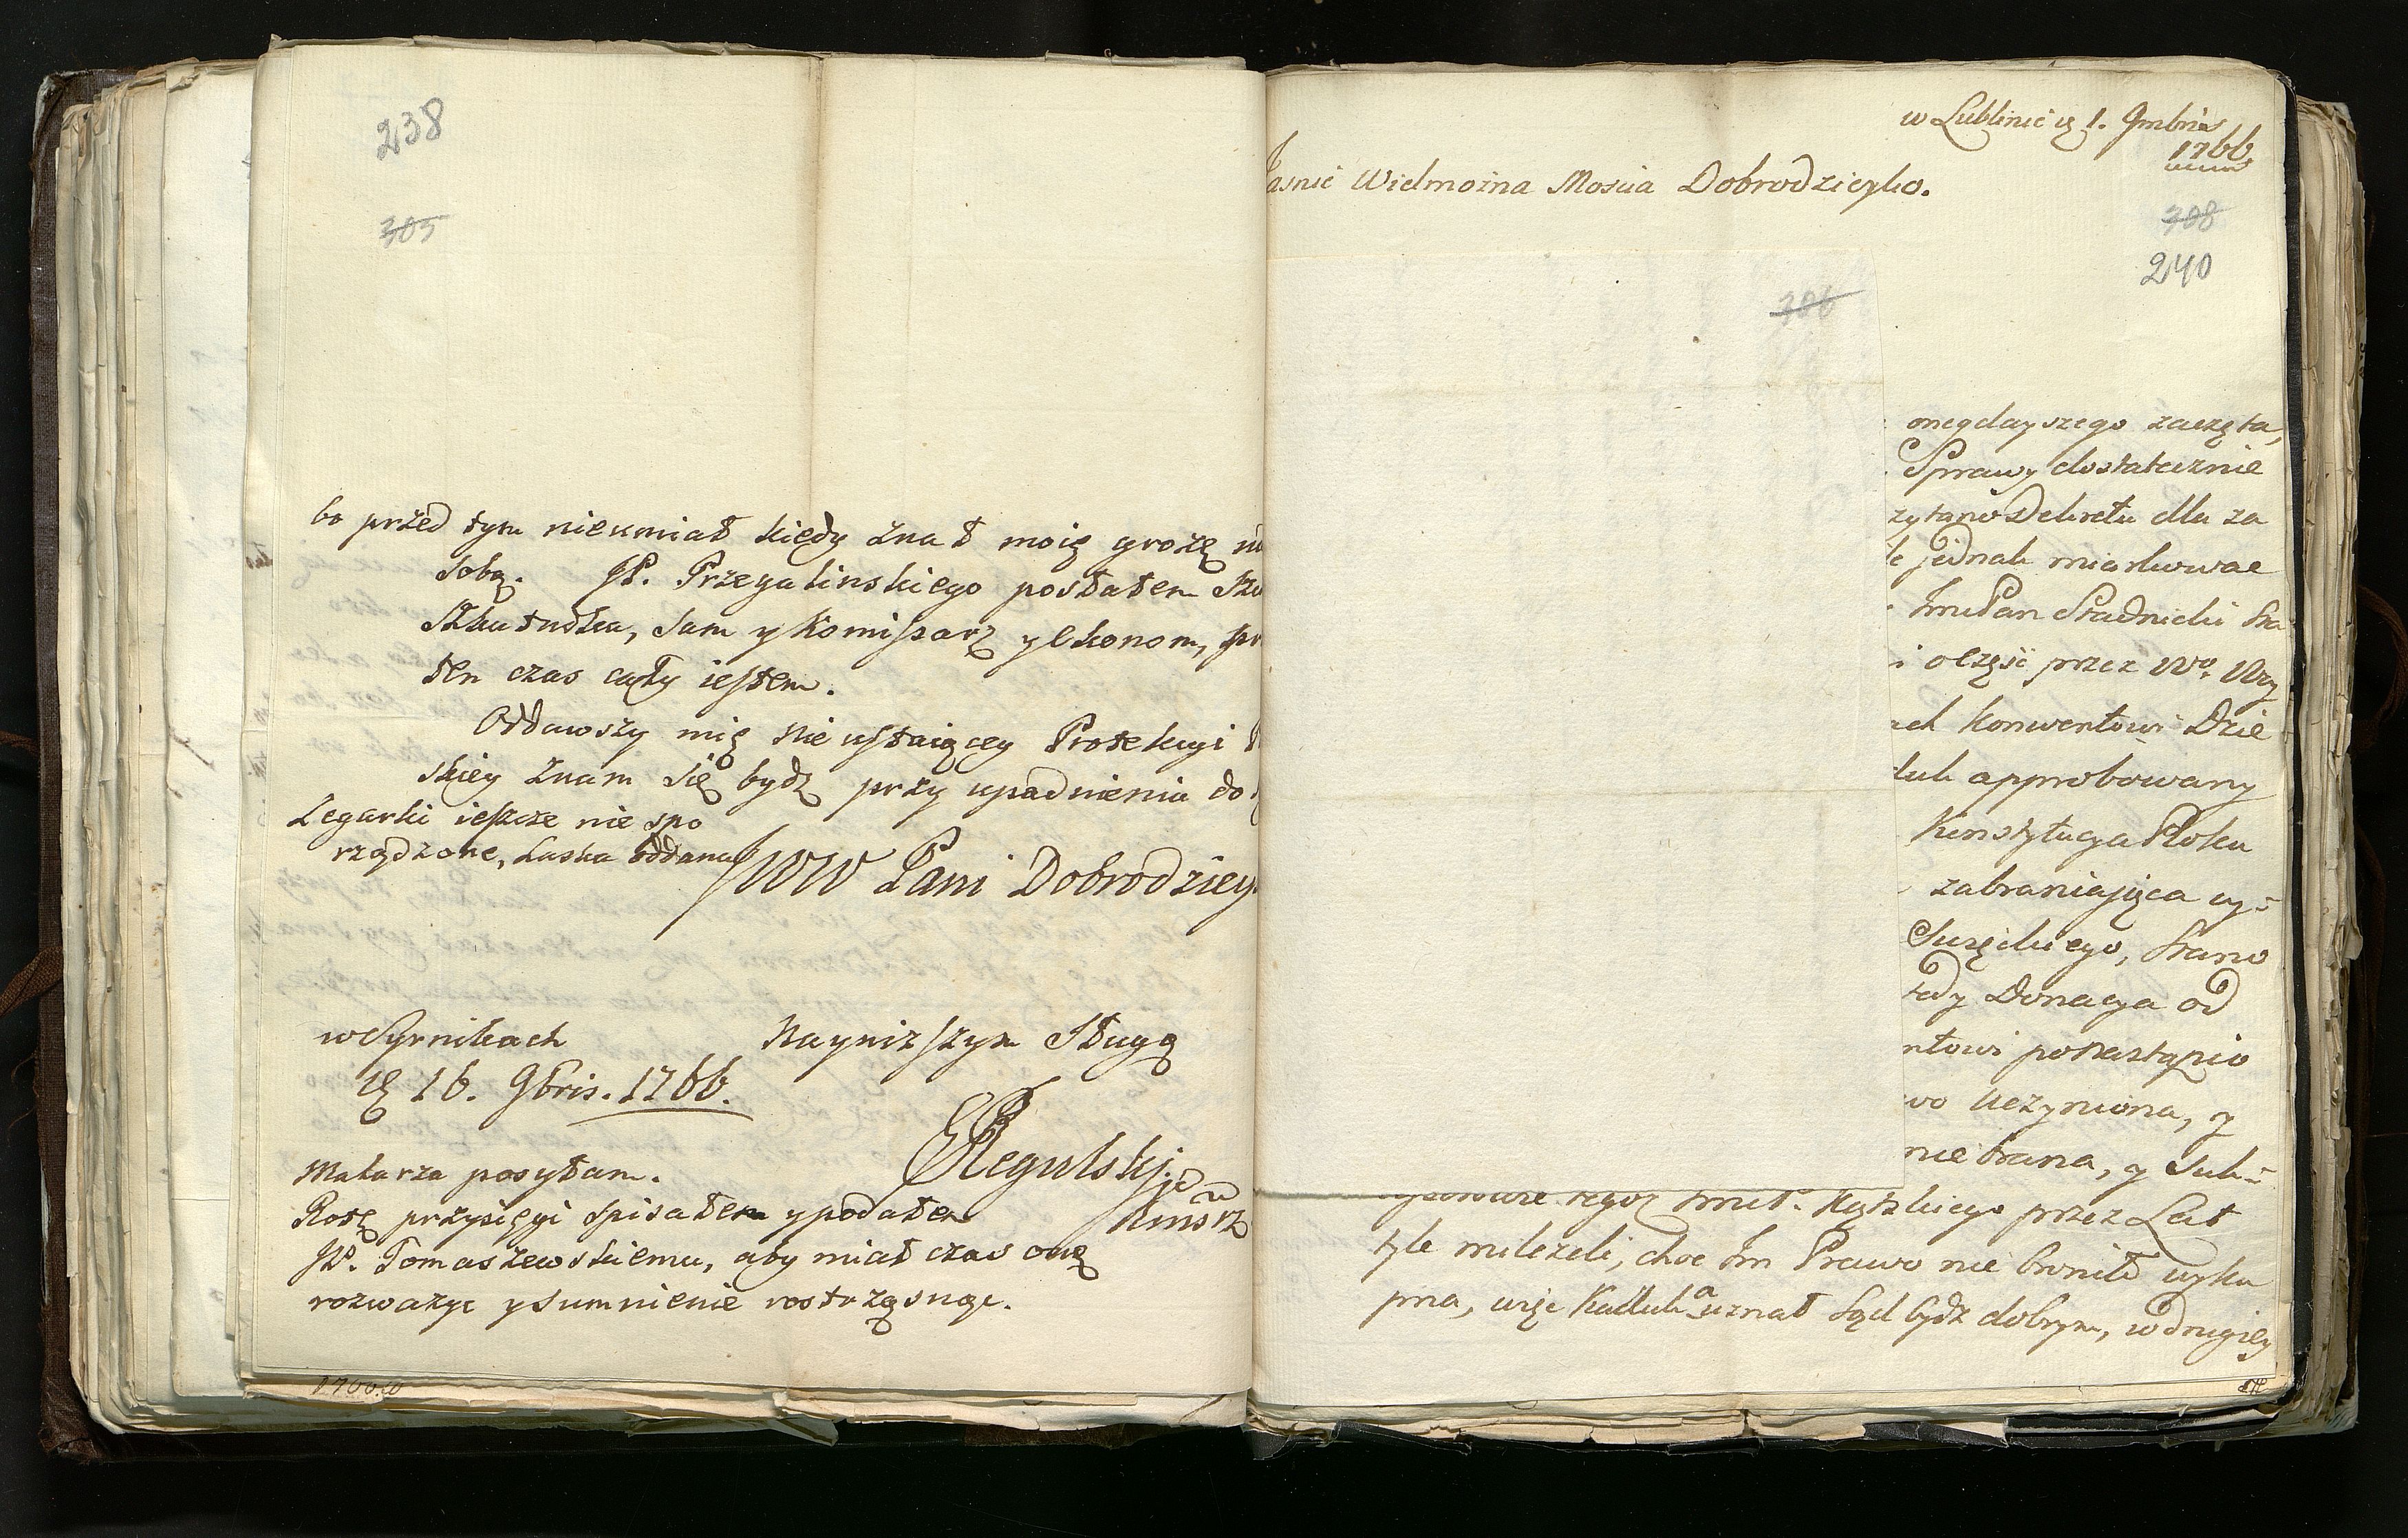 238
305
bo przed tym nieumiał kiedy znał moię grozę
sobą. JP. Przegalinskiego posłałem
Szkutnika, sam y Komissarz y Ekonom,
ten czas cały iestem.
Oddawszy mię nieustaiącey Protekcyi
skiey znam się bydź przy upadnieniu do
Zegarki ieszcze nie spo
rządzone, Laska oddana
JWW Pani Dobrodziey
w Syrnikach
16. 9bris. 1766.
Nayniższym Sługą
Regulskj
Malarza posyłam.
Rotę przysięgi spisałem y podałem
JP. Tomaszewskiemu, aby miał czas onę
rozważyc y sumnienie rostrząsnąc.
w Lublinie 1. 9mbris
1766
Jasnie Wielmożna Moscia Dobrodzieyko.
308
240
306
onegdayszego zaczęta,
Sprawy dostatecznie
zytano Dekretu dla za
jednak miarkowac
Jmć Pan Stadnicki Sta
i olzęść przez Wo. Wy
ach Konwentowi Dzie
duk approbowany
Konstytucya Roku
zabraniaiąca
Suzęckiego, Stano
tedy Donacya od
ntowi ponastąpio
wo uczyniona, y
nie brana, y Suk
tegoż Jmci. Kątskiego przez Lat
tyle milczeli, choc Im Prawo nie broniło wyku
pna, więc Kadluk a uznał Sąd bydź dobrym, w drugiey